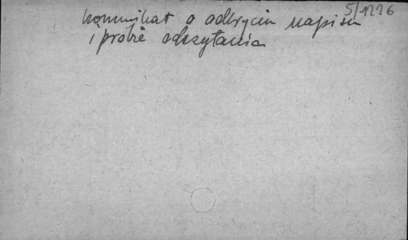 5/1226
komunikat o odkryciu napisu
i próbie odczytania